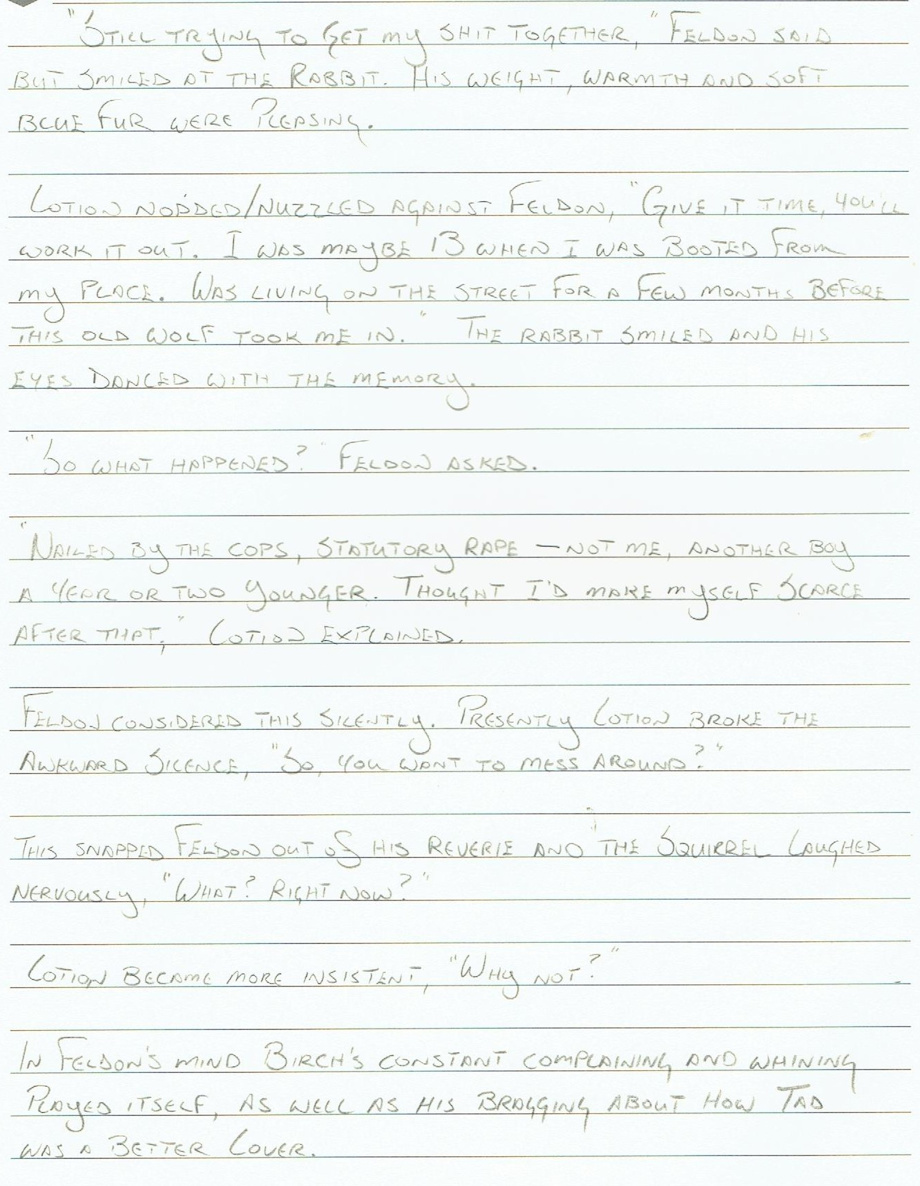 "Still trying to get my shit together," Feldon said
but smiled at the rabbit. His weight, warmth and soft
blue fur were pleasing.
Lotion nodded/nuzzled against Feldon, "Give it time, you'll
work it out. I was maybe 13 when I was booted from
my place. Was living on the street for a few months before
this old wolf took me in." The rabbit smiled and his
eyes danced with the memory.
"So what happened?" Feldon asked.
"Nailed by the cops, statutory rape – not me, another boy
a year or two younger. Thought I'd make myself scarce
after that," Lotion explained.
Feldon considered this silently. Presently Lotion broke the
awkward silence, "So, you want to mess around?"
This snapped Feldon out of his reverie and the squirrel laughed
nervously, "What? Right now?"
Lotion became more insistent, "Why not?"
In Feldon's mind Birch's constant complaining and whining
played itself, as well as his bragging about how Tad
was a better lover.